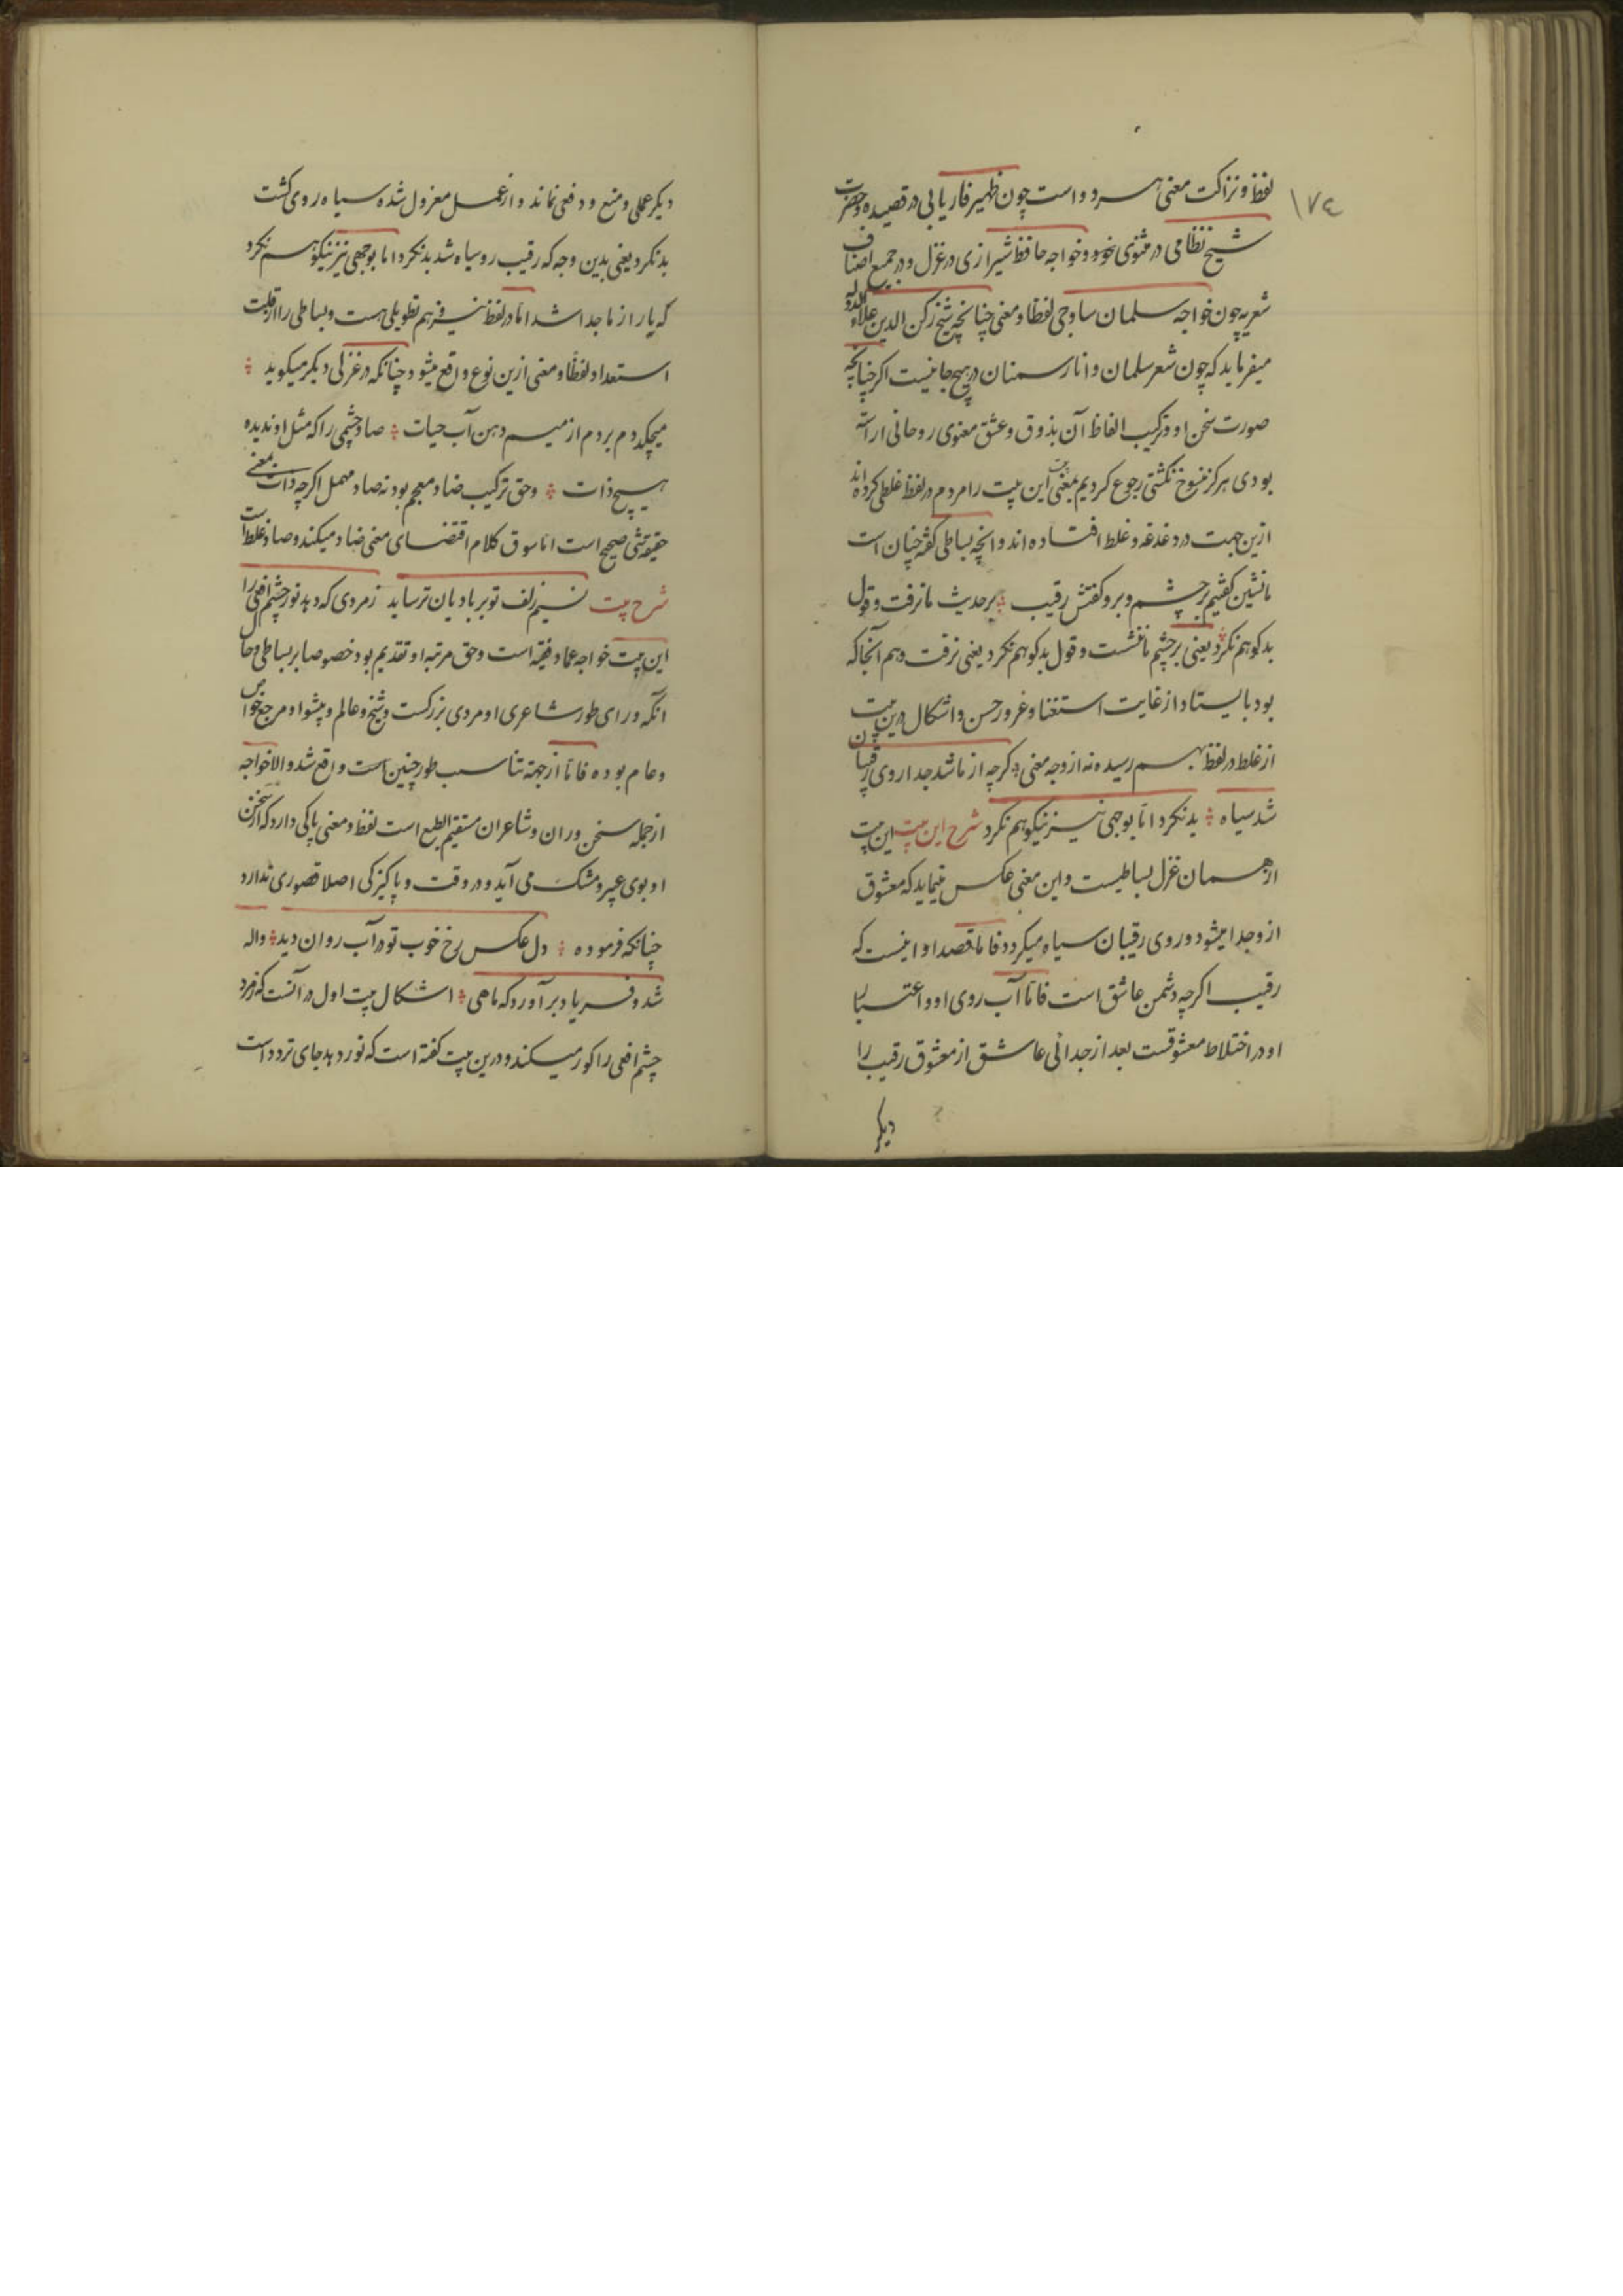 ١٧٤
لفظ و نزاکت معنی هر دو است چون ظهیر فاریابی در قصیده و حضرت
شیخ نظامی در مثنوی خود و خواجه حافظ شیرازی در غزل و در جمیع اصناف
شعریه چون خواجه سلمان ساوجی لفظا و معنی چنانچه شیخ رکن الدین علاء الدوله
میفرماید که چون شعر سلمان و انار سمنان در هیچ جا نیست اکر چنانچه
صورت سخن او و ترکیب الفاظ آن بذوق و عشق معنوی روحانی اراسته
بودی هرکز منسوخ نکشتی رجوع کردیم بمعنی بیت این بیت را مردم در لفظ غلطی کرده اند
ازین جهت در دغدغه و غلط افتاده اند و انچه بساطی کفته چنان است
ما نشین کفتیم بر چشم و برو کفتش رقیب ؞ بر حدیث ما نرفت و قول
بدکو هم نکرد ؞ یعنی بر چشم ما ننشست و قول بدکو هم نکرد یعنی نرفت و هم آنجا که
بود بایستاد از غایت استغنا و غرور حسن و اشکال درین بیت
از غلط در لفظ بهم رسیده نه از وجه معنی ؞ کرچه از ما شد جدا روی رقیبان
شد سیاه ؞ بد نکرد اما بوجهی نیز نیکو هم نکرد شرح این بیت این بیت
از همان غزل بساطیست و این معنی عکس مینماید که معشوق
ازو جدا میشود و روی رقیبان سیاه میکردد فاما قصد او اینست که
رقیب اکرچه دشمن عاشق است فاما آب روی او و اعتبار
او در اختلاط معشوقست بعد از جدائی عاشق از معشوق رقیب را
دیکر
دیکر عملی و منع و دفعی نماند و از عمل معزول شده سیاه روی کشت
بد نکرد یعنی بدین وجه که رقیب رو سیاه شد بد نکرد اما بوجهی نیز نیکو هم نکرد
که یار از ما جدا شد اما در لفظ نیز هم تطویلی هست و بساطی را از قلت
استعداد لفظا و معنی ازین نوع واقع میشود چنانکه در غزلی دیکر میکوید ؞
میچکد دم بردم از میم دهن آب حیات ؞ صاد چشمی را که مثل او ندیده
هیچ ذات ؞ وحق ترکیب ضاد معجم بود نه صاد مهمل اکرچه ذات بمعنی
حقیقة شی صحیح است اما سوق کلام اقتضای معنی ضاد میکند و صاد غلط است
شرح بیت نسیم زلف تو بر باد یان ترساید زمردی که دهد نور چشم افعی را
این بیت خواجه عماد فقیه است وحق مرتبه او تقدیم بود خصوصا بر بساطی و حال
انکه ورای طور شاعری او مردی بزرکست و شیخ و عالم و پیشوا و مرجع خواص
و عام بوده فاما از جهة تناسب طور چنین است واقع شد و الا خواجه
از جمله سخن وران و شاعران مستقیم الطبع است لفظ و معنی پاکی دارد که از سخن
او بوی عبیر و مشک می آید و در وقت و پاکیزکی اصلا قصوری ندارد
چنانکه فرموده ؞ دل عکس رخ خوب تو در آب روان دید ؞ واله
شد و فریاد بر آورد که ماهی ؞ اشکال بیت اول در آنست که زمرد
چشم افعی را کور میکند و درین بیت کفته است که نور دهد جای تردد است